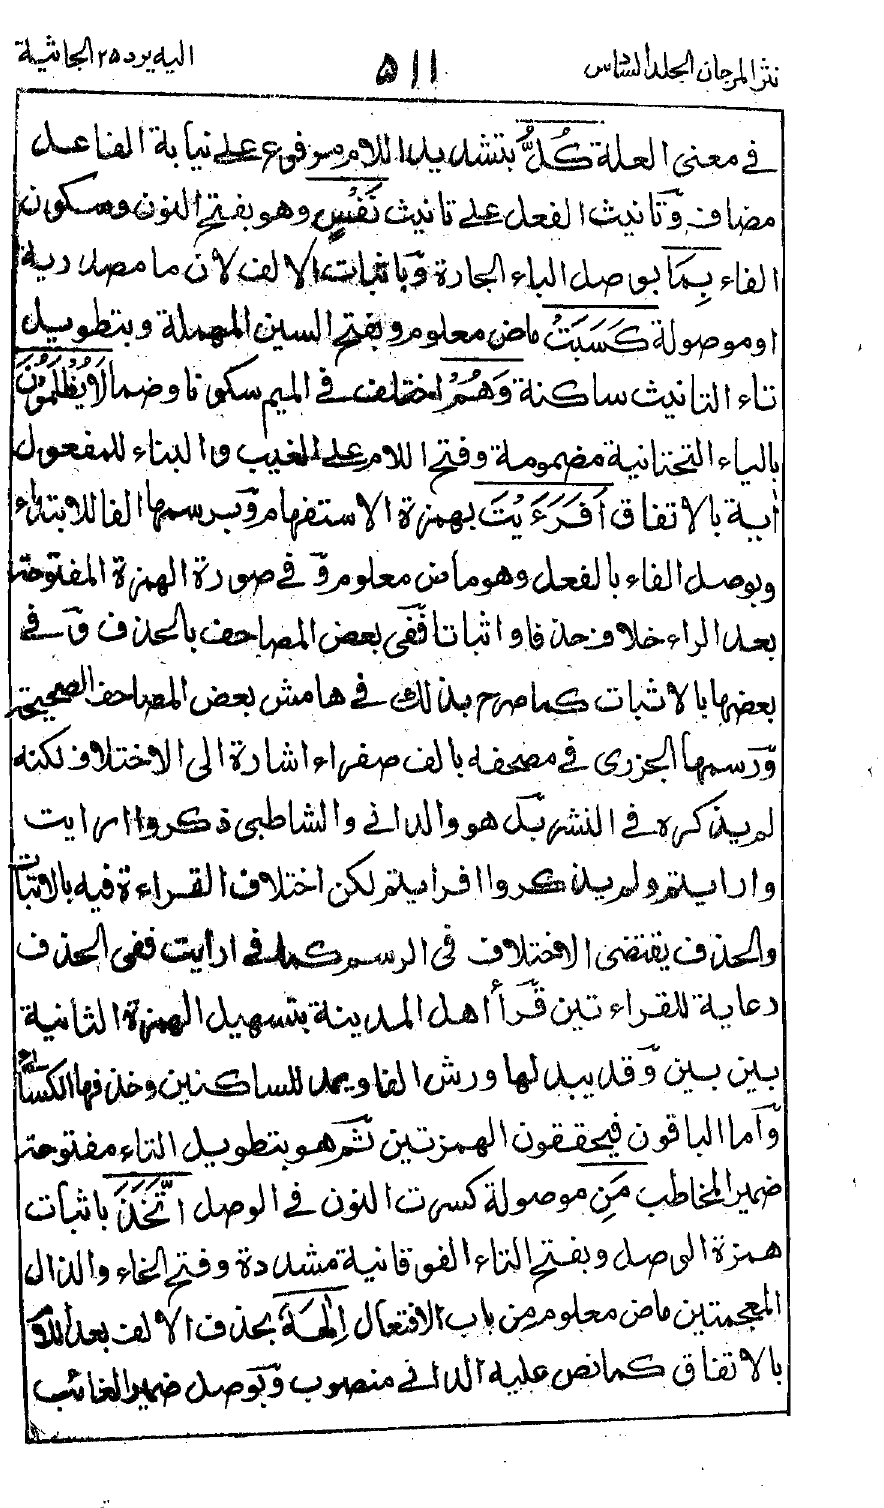 نثر المرجان الجلد السادس
٥١١
اليه يرد ٢٥ الجاثية
فى معنى العلة كُلُّ بتشديد اللام مرفوع على نيابة الفاعل
مضاف وتانيث الفعل على تانيث نَفْسٍ وهو بفتح النون وسكون
الفاء بِمَا بوصل الباء الجارة وباثبات الالف لان ما مصدرية
اوموصولة كَسَبَتْ ماض معلوم وبفتح السين المهملة وبتطويل
تاء التانيث ساكنة وَهُمْ اختلف فى الميم سكونا وضما لَايُظْلَمُوْنَ
بالياء التحتانية مضمومة وفتح اللام على الغيب والبناء للمفعول
أية بالاتفاق اَفَرَءَيْتَ بهمزة الاستفهام وبرسمها الفا للابتداء
وبوصل الفاء بالفعل وهو ماض معلوم وفى صورة الهمزة المفتوحة
بعد الراء خلاف حذفا واثباتا ففى بعض المصاحف بالحذف وفى
بعضها بالاثبات كما صرح بذلك فى هامش بعض المصاحف الصحيحة
ورسمها الجزرى فى مصحفه بالف صفراء اشارة الى الاختلاف لكنه
لم يذكره فى النشر بل هو والدانى والشاطبى ذكروا ارايت
وارايتم ولم يذكروا افرايتم لكن اختلاف القراءة فيه بالاثبات
والحذف يقتضى الاختلاف فى الرسم كما فى ارايت ففى الحذف
دعاية للقراءتين قرأ اهل المدينة بتسهيل الهمزة الثانية
بين بين وقد يبدلها ورش الفا ويمد للساكنين وحذفها الكسائى
واما الباقون فيحققون الهمزتين ثم هو بتطويل التاء مفتوحة
ضمير المخاطب مَنِ موصولة كسرت النون فى الوصل اتَّخَذَ باثبات
همزة الوصل وبفتح التاء الفوقانية مشددة وفتح الخاء والذال
المعجمتين ماض معلوم من باب الافتعال اِلٰهَهُ بحذف الالف بعد اللام
بالاتفاق كما نص عليه الدانى منصوب وبوصل ضمير الغائب